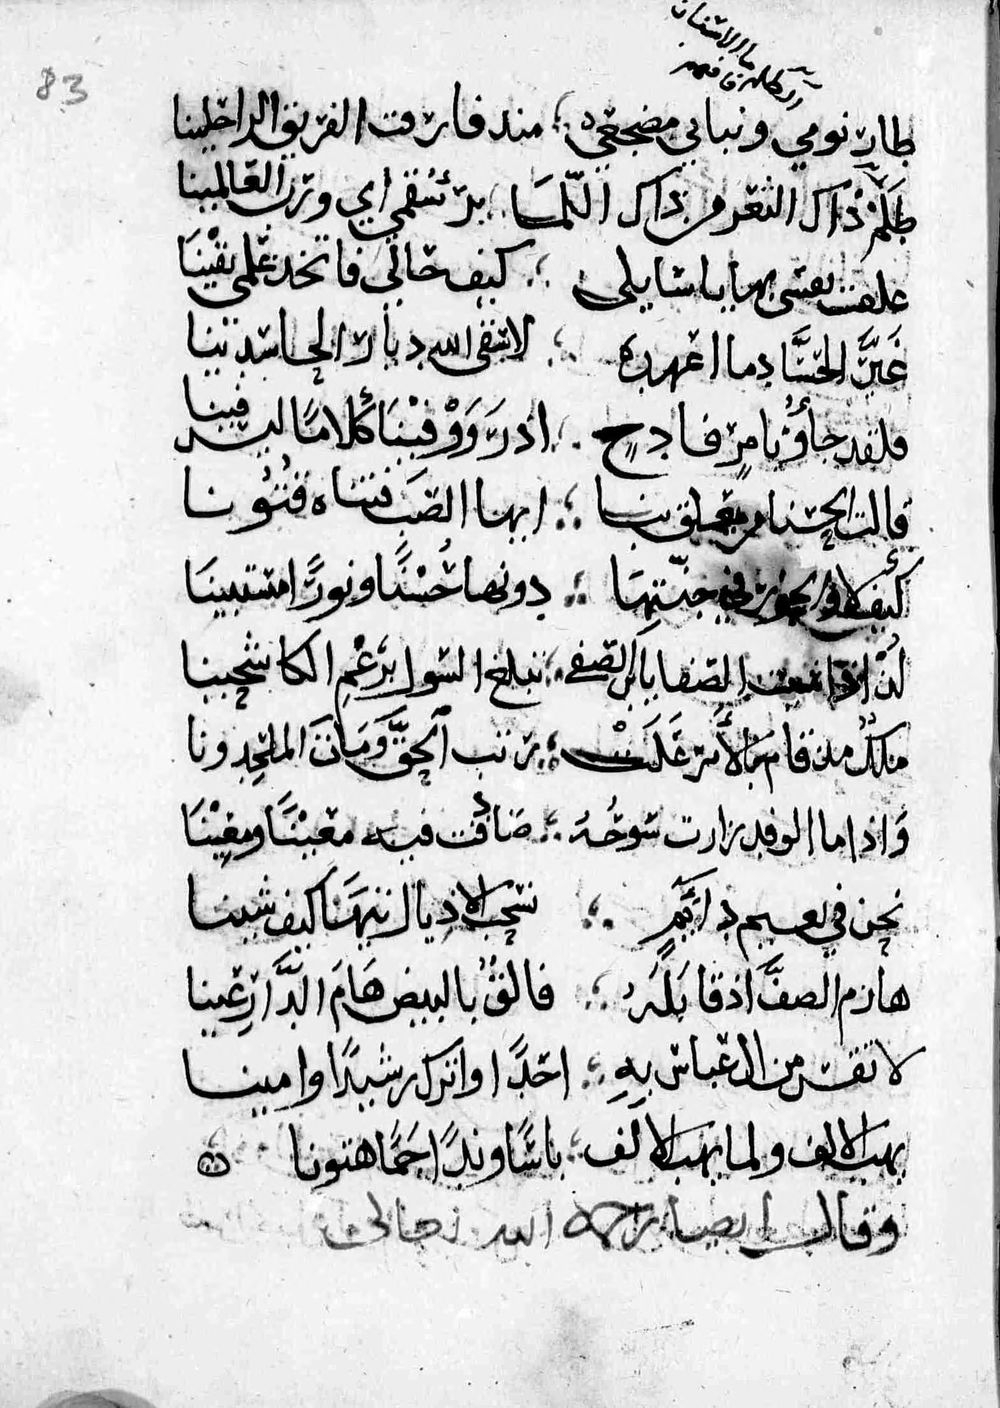 ما الامتنان
83
طار نومي ونبا بي مضجعي ؛ منذ فارقت الفريق الراحلينا
ظَلْمُ ذاك الثغر من ذاك اللّمَا برئ سقمي اي وربّ العالمينا
علقت نفسي بها يا سايلي ؛ كيف حالي فاتخذ علمي يقيْنَا
غَيَّرَ الحسَّاد ما اعهده ؛ لاسقى الله ديار الحاسدينا
فلقد جاؤُنا من فادحٍ اذ رَوَوْ فيْنَا كلامًا ليس فينا
قالت الحسنا من بنا ؛ ايها الصبّ فتناه فتُونا
كيف لا والحور في جنّتِهَا ؛ دونها حُسْنًا ونورًا مستبينَا
لُذْ اذا الصفا بابن الصفي ؛ تبلغ السول برغم الكاشحينا
ملكٌ مذ قام بالأمر عَلَتْ ؛ رتب الحقّ وَمَاتَ الملحدونا
وَاذا ما الوفد زارت سَوحَهُ ؛ صادفت فيه معينًا ومعيْنَا
نحن في نعيم دائمٍ ؛ نسحب الاذيال تيهًا كيف شينا
هازم الصفَّ اذ قابَلَهُ ؛ فالقُ بالبيض هَامَ الدَّارعينا
لا تقس من ال عباس بهِ ؛ احدًا واترك رشيدًا وامينا
يهب الالف ولما يهب الالف ؛ باسًا وندًا جمًا هتونا
وقال ايضا رحمه الله تعالى